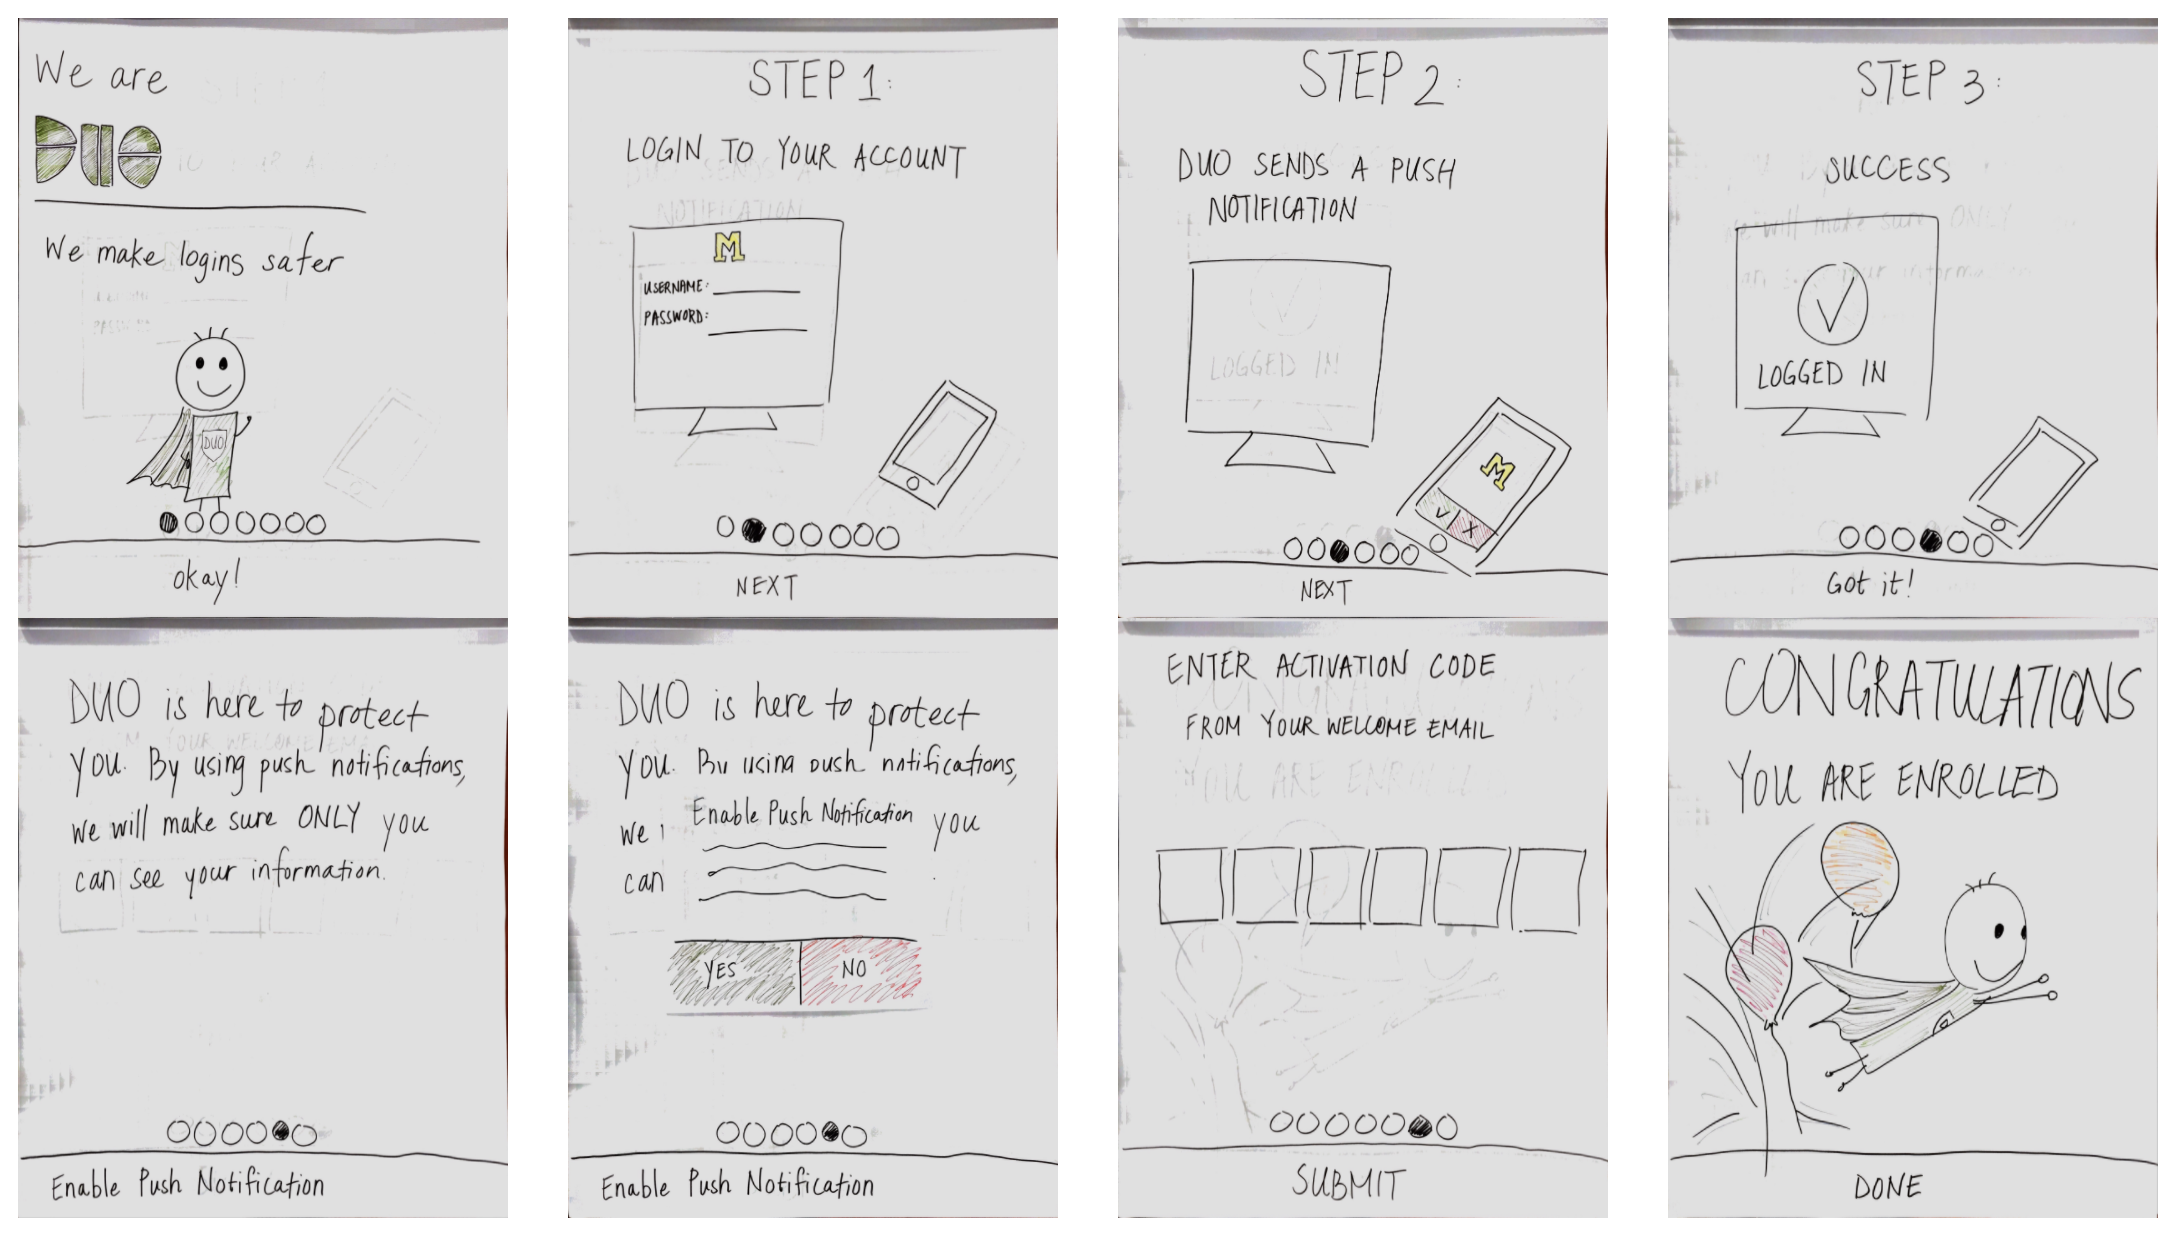 We are
DUO
We make logins safer
DUO
okay!
STEP 1:
LOGIN TO YOUR ACCOUNT
M
USERNAME:
PASSWORD:
NEXT
STEP 2:
DUO SENDS A PUSH
NOTIFICATION
M
LOGGED IN
NEXT
STEP 3:
SUCCESS
LOGGED IN
Got it!
DUO is here to protect
you. By using push notifications,
we will make sure ONLY you
can see your information.
Enable Push Notification
DUO is here to protect
you. By using push notifications,
we
Enable Push Notification
you
can
YES
NO
Enable Push Notification
ENTER ACTIVATION CODE
FROM YOUR WELCOME EMAIL
YOU ARE ENROLLED
SUBMIT
CONGRATULATIONS
YOU ARE ENROLLED
DONE